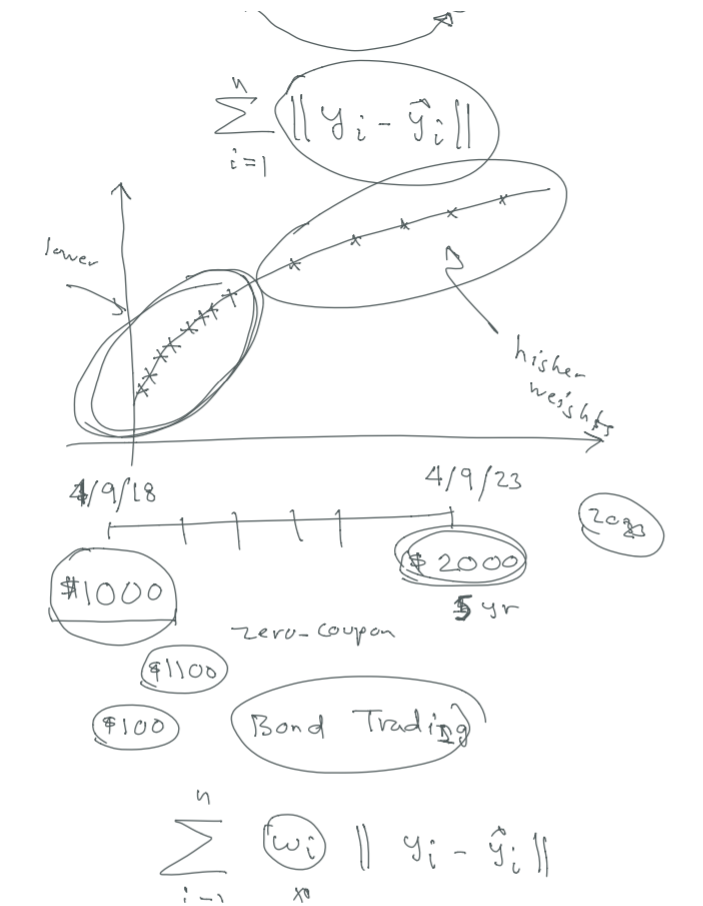 n
∑ || yᵢ - ŷᵢ ||
i=1
lower
higher
weights
4/9/18
4/9/23
$1000
$2000
5 yr
zero-coupon
$1100
$100
Bond Trading
n
∑ wᵢ || yᵢ - ŷᵢ ||